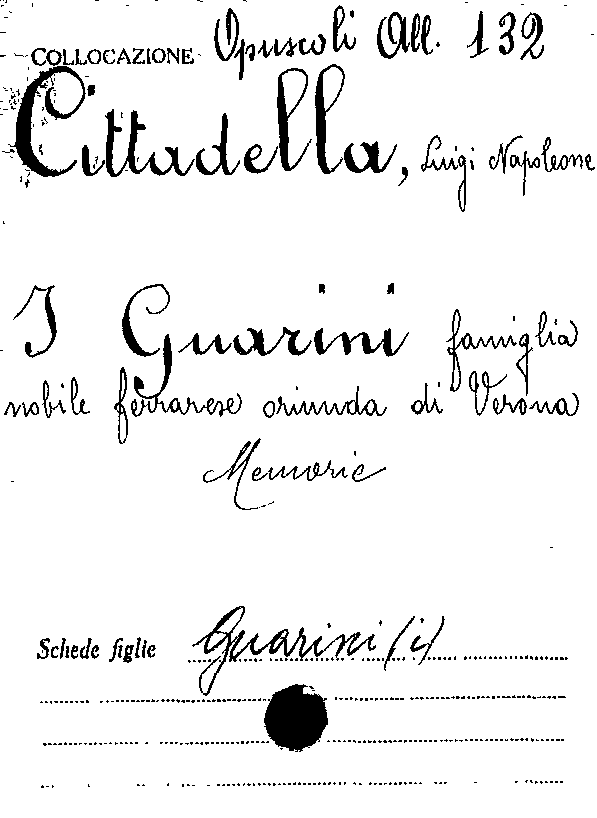 COLLOCAZIONE Opuscoli All. 132
Cittadella, Luigi Napoleone
I Guarini famiglia
nobile ferrarese oriunda di Verona
Memorie
Schede figlie Guarini (i)